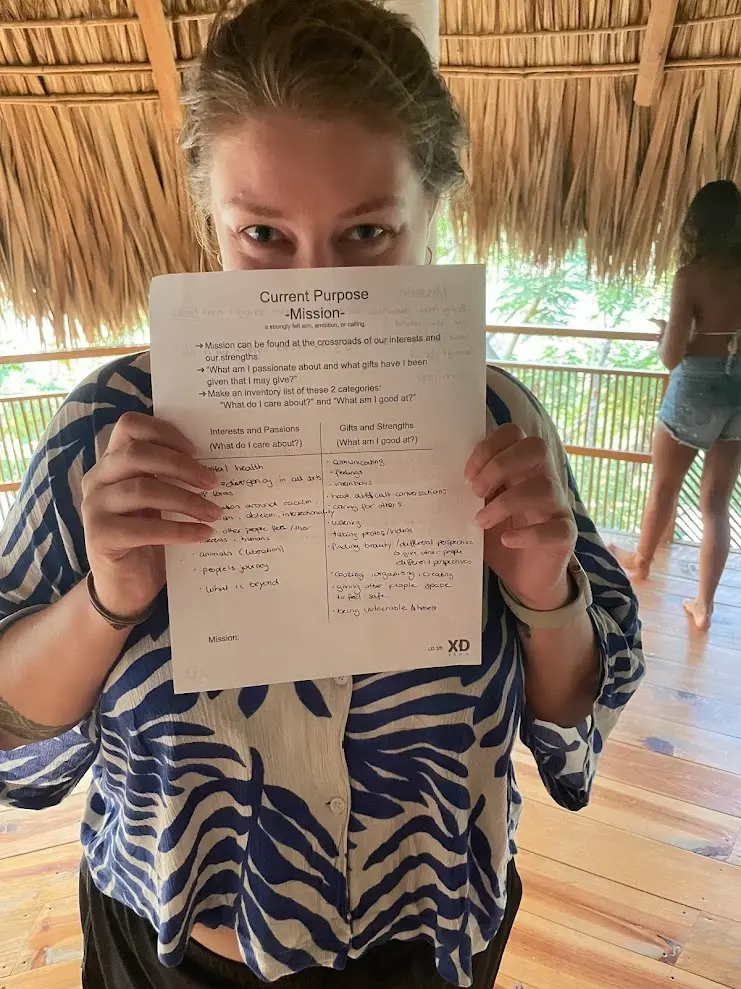 Current Purpose
-Mission-
a strongly felt aim, ambition, or calling
→ Mission can be found at the crossroads of our interests and
our strengths.
→ "What am I passionate about and what gifts have I been
given that I may give?"
→ Make an inventory list of these 2 categories:
"What do I care about?" and "What am I good at?"
Interests and Passions
(What do I care about?)
health
in all
of forms
around racism
, intersectionality
other people feel /
, humans
· animals (liberation)
· people's journey
· what is beyond
Gifts and Strengths
(What am I good at?)
· comunicating
· feelings
· have difficult conversations
· caring for others
· listening
taking photos/videos
finding beauty /different perspective
to give other people
different perspectives
· cooking, organising, creating
· giving other people space
to feel safe
· being vulnerable & honest
Mission:
XD